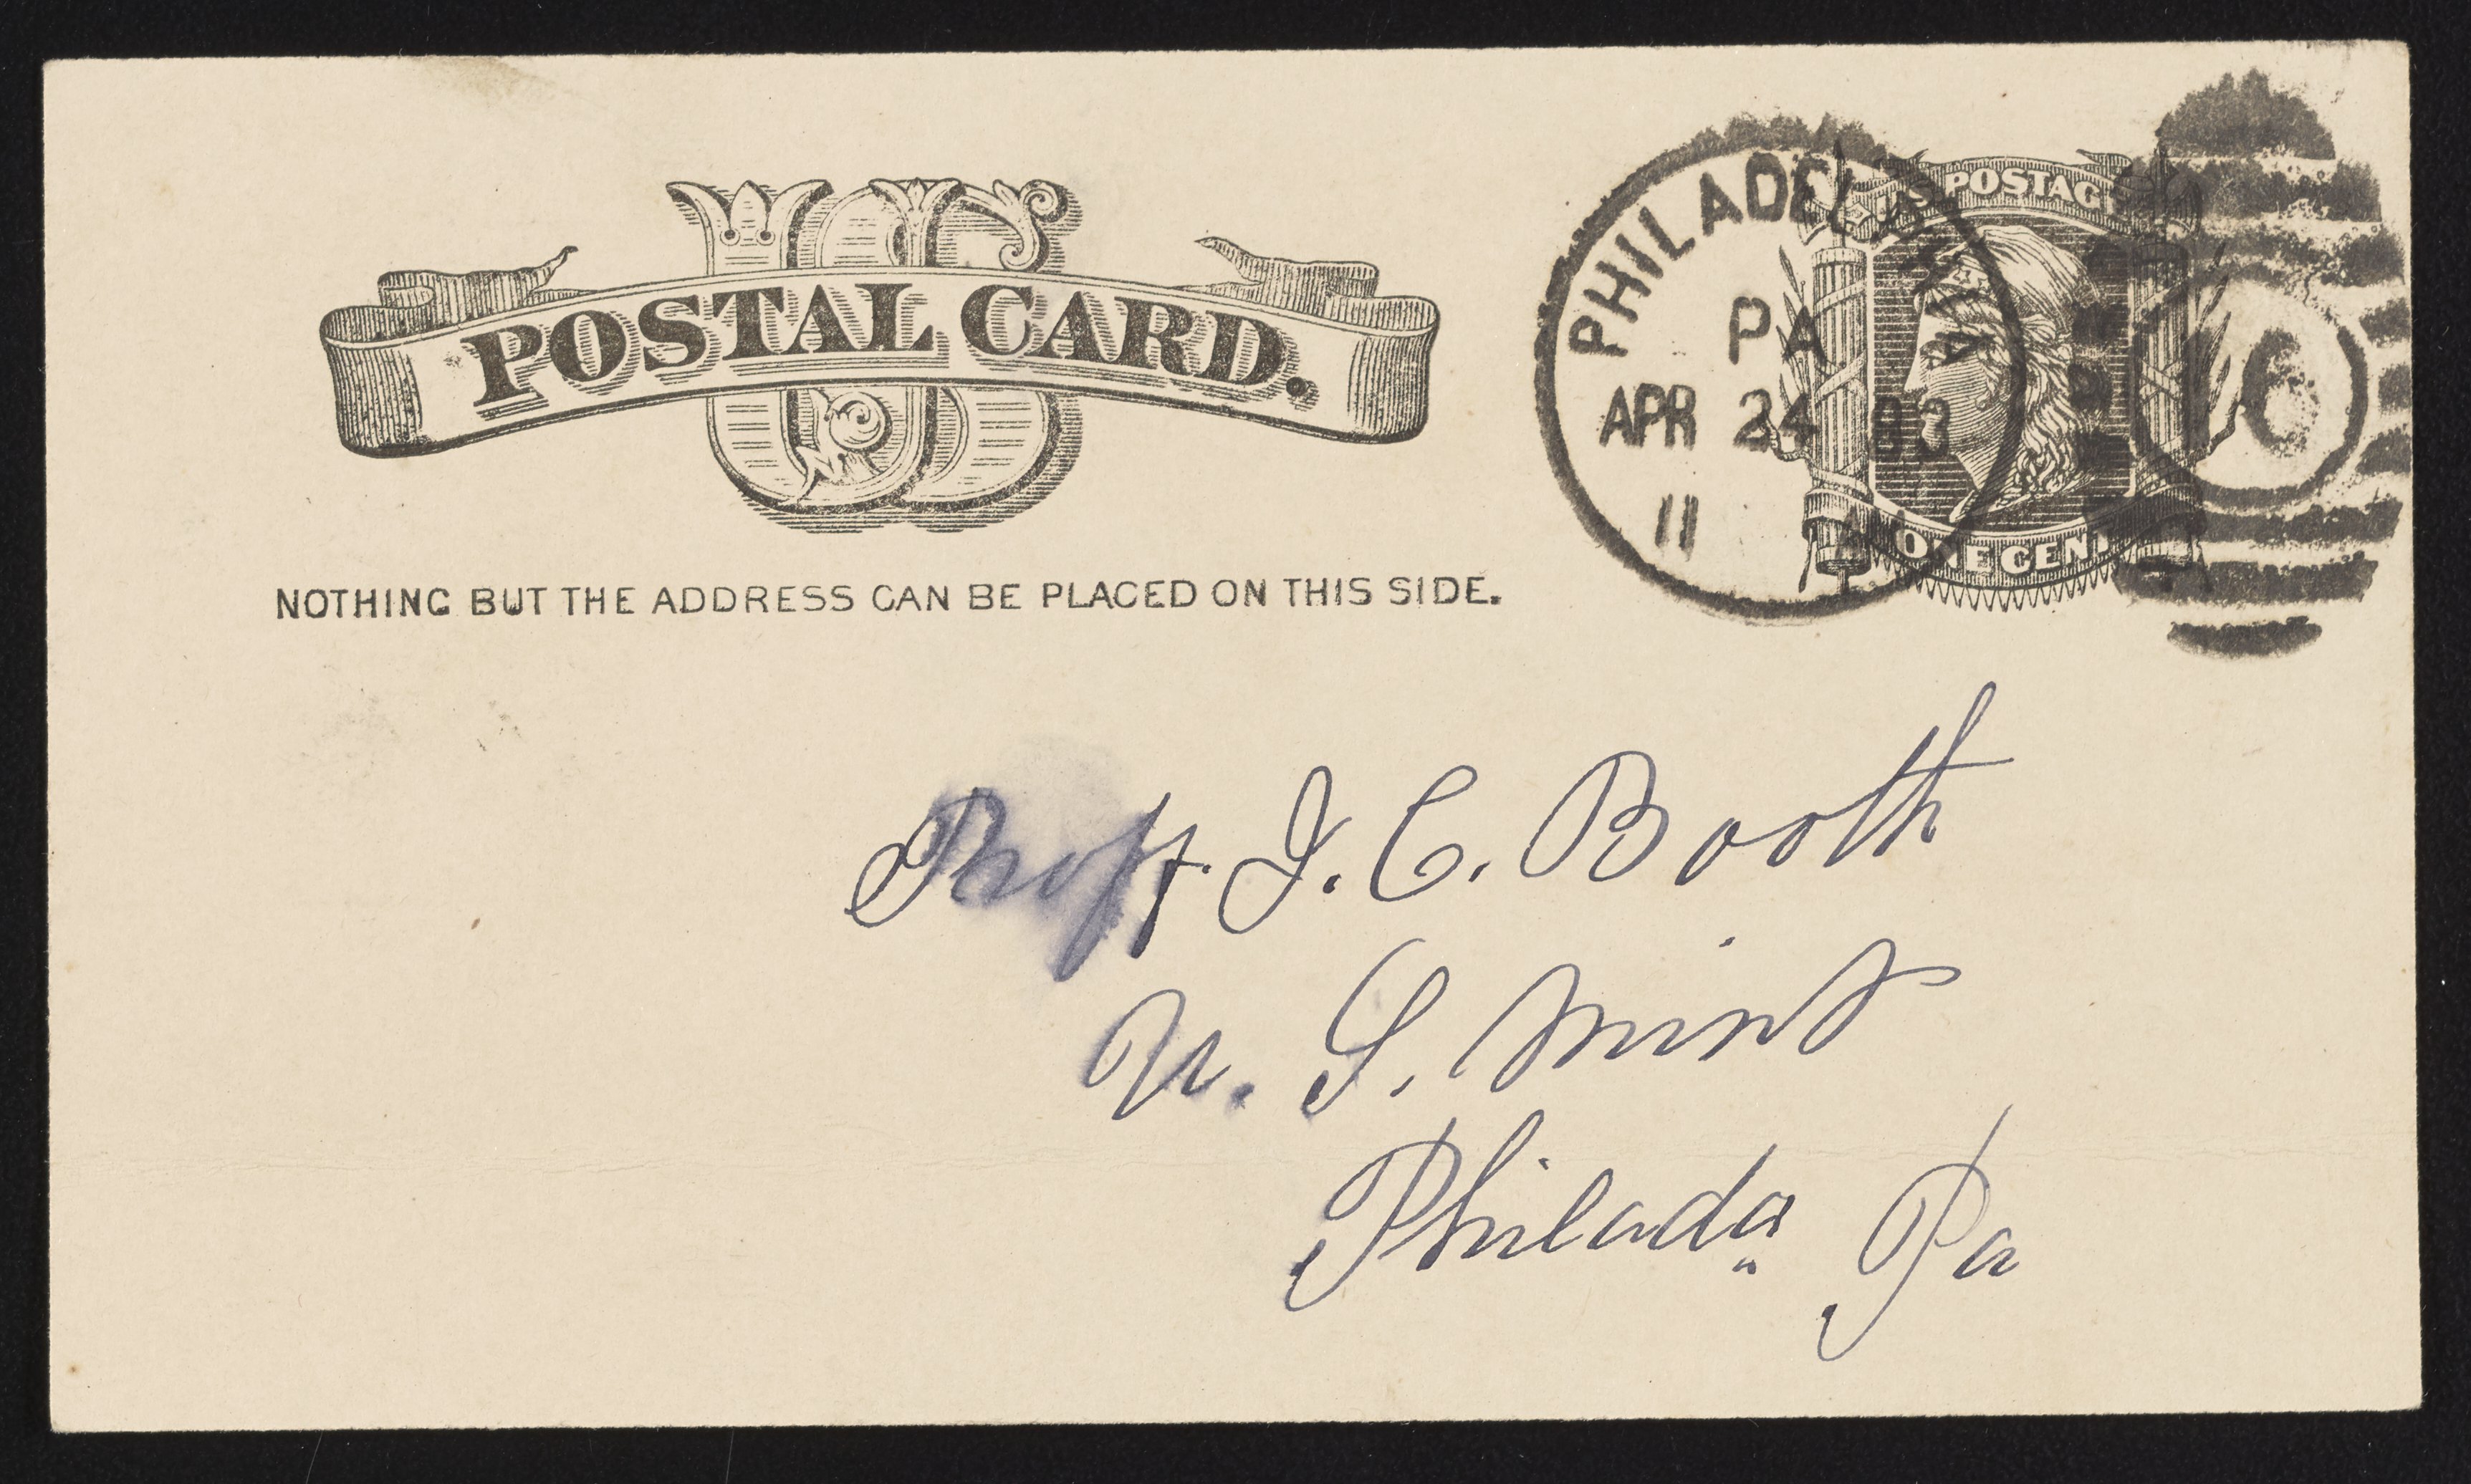 US
POSTAL CARD.
NOTHING BUT THE ADDRESS CAN BE PLACED ON THIS SIDE.
PHILADELPHIA
PA
APR 24 83
11
U.S. POSTAGE
ONE CENT
16
Proff. J. C. Booth
U. S. Mint
Philada Pa